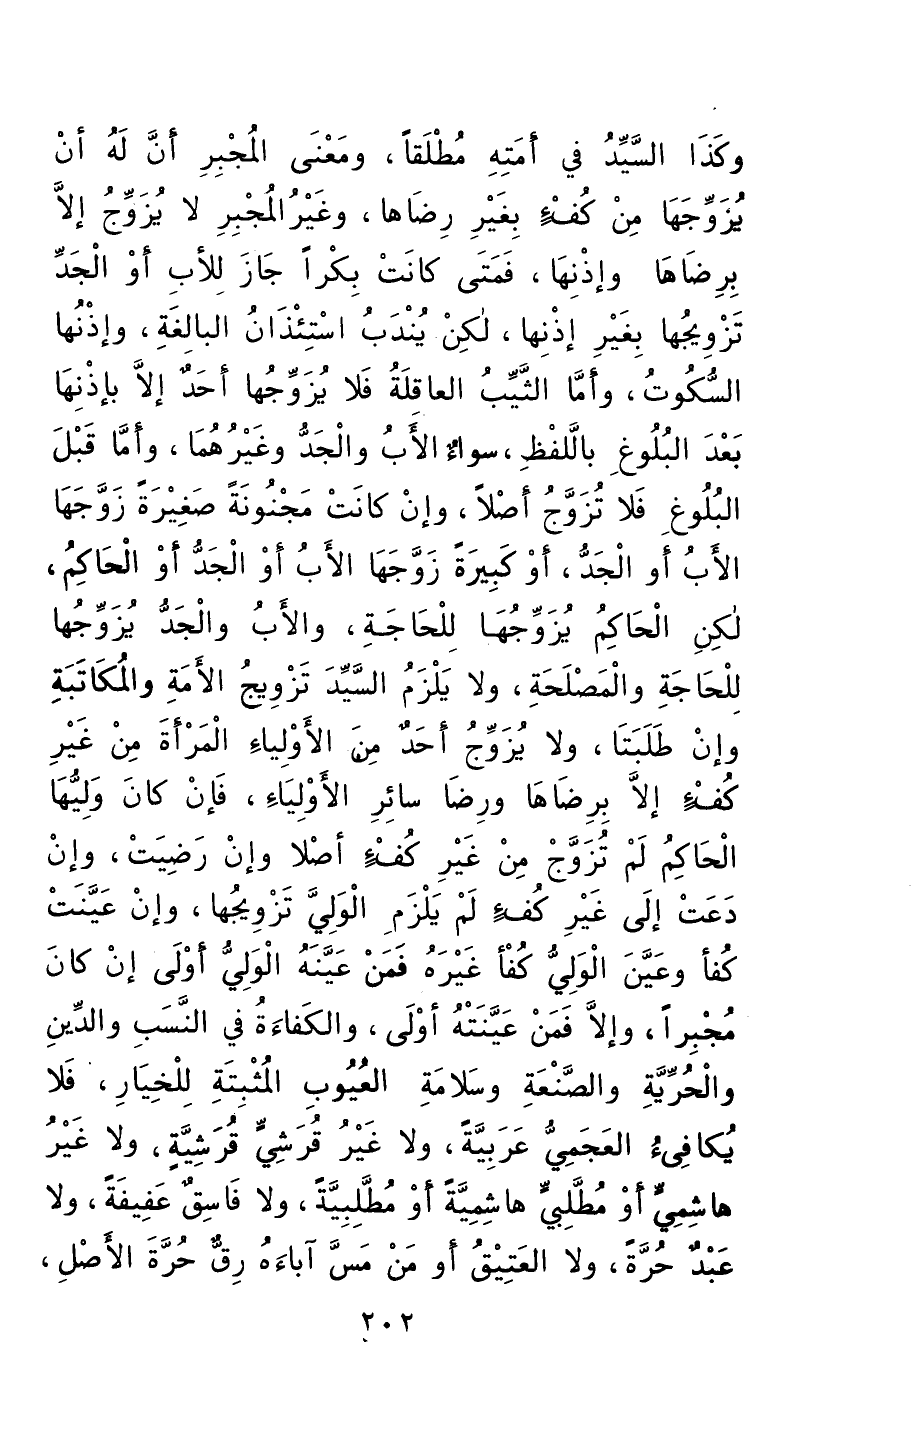 وكَذَا السَّيِّدُ في أَمَتِهِ مُطْلَقاً، ومَعْنَى المُجْبِرِ أَنَّ لَهُ أنْ
يُزَوِّجَهَا مِنْ كُفْءٍ بِغَيْرِ رِضَاها، وغَيْرُ المُجْبِرِ لا يُزَوِّجُ إلاَّ
بِرِضَاهَا وإذْنِهَا، فَمَتَى كانَتْ بِكْراً جَازَ لِلأبِ أَوْ الْجَدِّ
تَزْوِيجُها بِغَيْرِ إذْنِها، لٰكِنْ يُنْدَبُ اسْتِئْذَانُ البالِغَةِ، وإذْنُها
السُّكُوتُ، وأَمَّا الثَّيِّبُ العاقِلَةُ فَلا يُزَوِّجُها أَحَدٌ إلاَّ بإذْنِهَا
بَعْدَ البُلُوغِ باللَّفْظِ، سواءٌ الأَبُ والْجَدُّ وغَيْرُهُمَا، وأَمَّا قَبْلَ
البُلُوغِ فَلا تُزَوَّجُ أَصْلاً، وإنْ كانَتْ مَجْنُونَةً صَغِيْرَةً زَوَّجَهَا
الأَبُ أو الْجَدُّ، أَوْ كَبِيرَةً زَوَّجَهَا الأَبُ أَوْ الْجَدُّ أَوْ الْحَاكِمُ،
لٰكِنِ الْحَاكِمُ يُزَوِّجُهَا لِلْحَاجَةِ، والأَبُ والْجَدُّ يُزَوِّجُها
لِلْحَاجَةِ والْمَصْلَحَةِ، ولا يَلْزَمُ السَّيِّدَ تَزْوِيجُ الأَمَةِ والمُكَاتَبَةِ
وإنْ طَلَبَتَا، ولا يُزَوِّجُ أَحَدٌ مِنَ الأَوْلِياءِ الْمَرْأَةَ مِنْ غَيْرِ
كُفْءٍ إلاَّ بِرِضَاهَا ورِضَا سائِرِ الأَوْلِيَاءِ، فَإنْ كانَ وَلِيُّهَا
الْحَاكِمُ لَمْ تُزَوَّجْ مِنْ غَيْرِ كُفْءٍ أصْلا وإنْ رَضِيَتْ، وإنْ
دَعَتْ إلَى غَيْرِ كُفءٍ لَمْ يَلْزَمِ الْوَلِيَّ تَزْوِيجُها، وإنْ عَيَّنَتْ
كُفأ وعَيَّنَ الْوَلِيُّ كُفْأً غَيْرَهُ فَمَنْ عَيَّنَهُ الْوَلِيُّ أَوْلَى إنْ كانَ
مُجْبِراً، وإلاَّ فَمَنْ عَيَّنَتْهُ أوْلَى، والكَفاءَةُ في النَّسَبِ والدِّينِ
والْحُرِّيَّةِ والصَّنْعَةِ وسَلامَةِ العُيُوبِ المُثْبِتَةِ لِلْخِيَارِ، فَلا
يُكافِىءُ العَجَمِيُّ عَرَبِيَّةً، ولا غَيْرُ قُرَشِيٍّ قُرَشِيَّةٍ، ولا غَيْرُ
هاشِمِيٍّ أَوْ مُطَّلِبِيٍّ هاشِمِيَّةً أَوْ مُطَّلِبِيَّةً، ولا فَاسِقٌ عَفِيفَةً، ولا
عَبْدٌ حُرَّةً، ولا العَتِيْقُ أو مَنْ مَسَّ آباءَهُ رِقٌّ حُرَّةَ الأَصْلِ،
٢٠٢